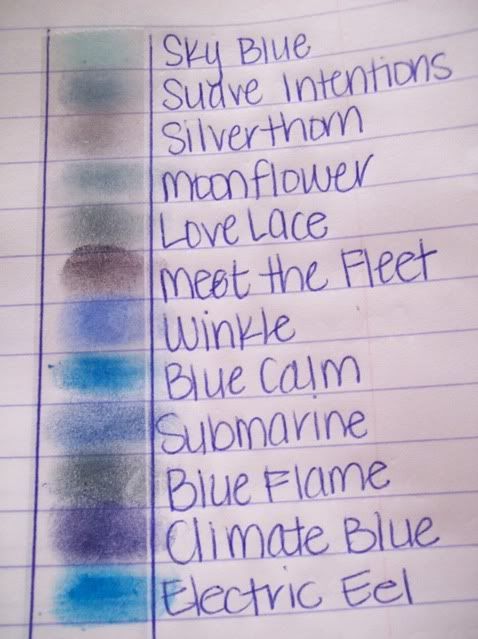 Sky Blue
Suave Intentions
Silverthorn
Moonflower
Love Lace
Meet the Fleet
Winkle
Blue Calm
Submarine
Blue Flame
Climate Blue
Electric Eel